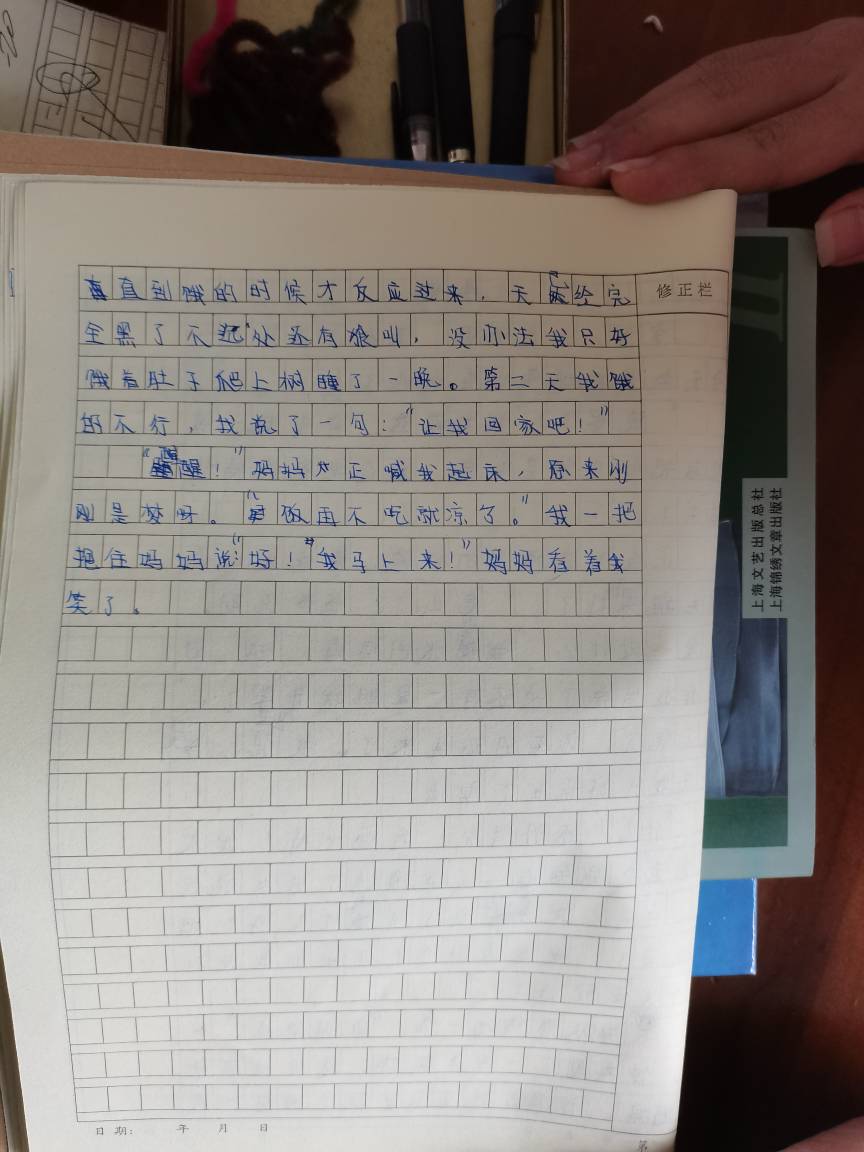 直到饿的时候才反应过来，天已经完
全黑了不远处还有狼叫，没办法我只好
饿着肚子爬上树睡了一晚。第二天我饿
的不行，我说了一句：“让我回家吧！”
“醒醒！”妈妈正喊我起床，原来刚
刚是梦呀。“饭再不吃就凉了。”我一把
抱住妈妈说：“好！我马上来！”妈妈看着我
笑了。
修正栏
上海文艺出版总社
上海锦绣文章出版社
日期： 年 月 日
第